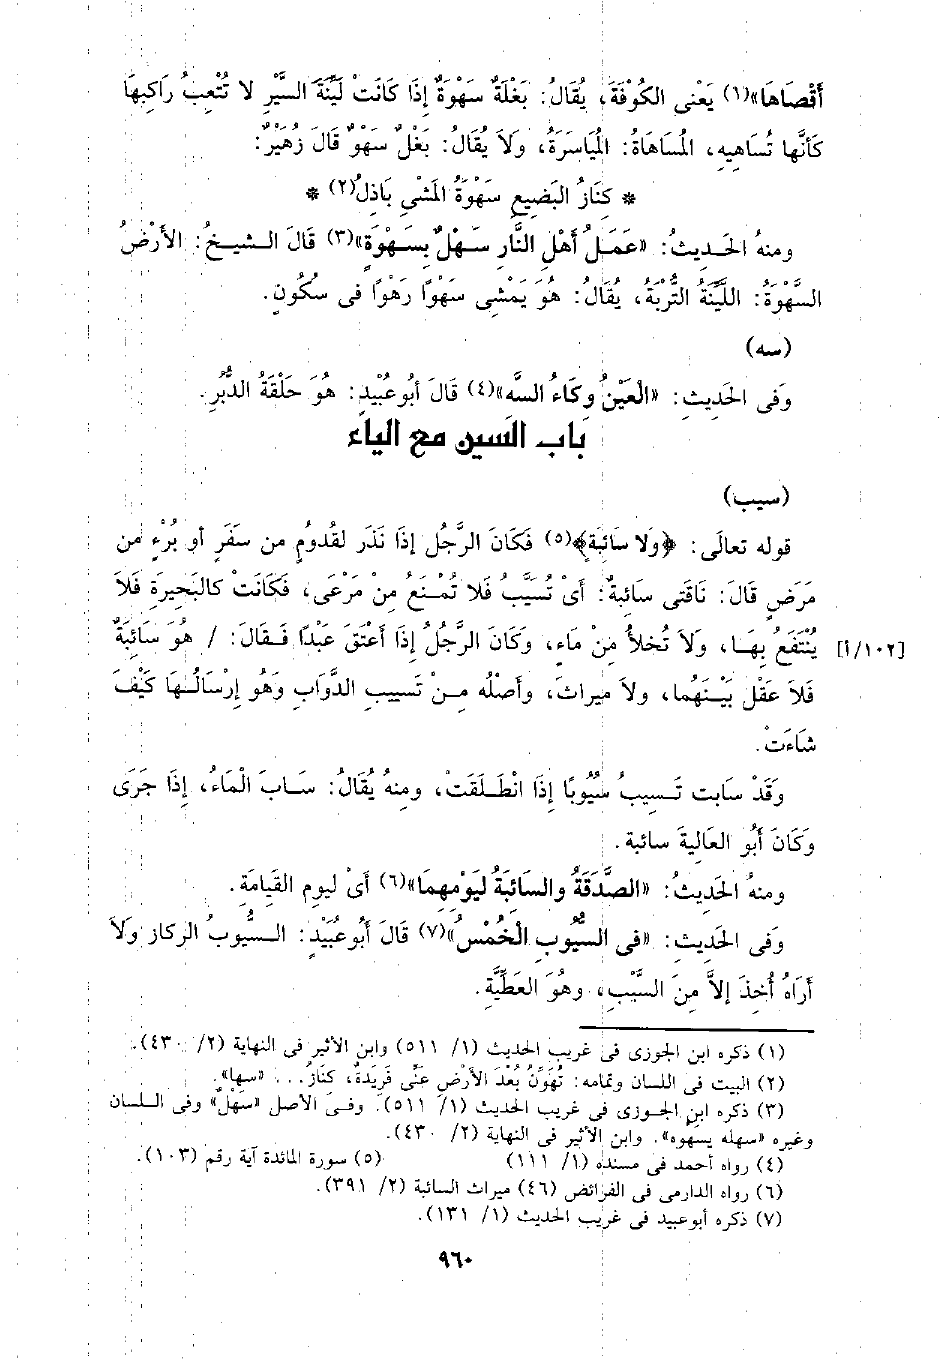 أَقْصَاهَا»(١) يَعْنِى الكُوفَةَ، يُقَالُ: بَغْلَةٌ سَهْوَةٌ إِذَا كَانَتْ لَيِّنَةَ السَّيْرِ لا تُتْعِبُ رَاكِبهَا
كَأنَّها تُسَاهِيهِ، المُسَاهَاةُ: المُيَاسَرَةُ، ولَا يُقَالُ: بَغْلٌ سَهْوٌ قَالَ زُهَيْرٌ:
* كِنَازُ البَضِيعِ سَهْوَةُ المَشْىِ بَاذِلُ(٢) *
ومنهُ الحَدِيثُ: «عَمَلُ أَهْلِ النَّارِ سَهْلٌ بِسَهْوَةٍ»(٣) قَالَ الشيخُ: الأَرْضُ
السَّهْوَةُ: اللَّيِّنَةُ التُّرْبَةُ، يُقَالُ: هُوَ يَمْشِى سَهْوًا رَهْوًا فى سكُونٍ.
(سه)
وَفى الحَدِيثِ: «الْعَيْنُ وِكَاءُ السَّه»(٤) قَالَ أَبُوعُبَيْدٍ: هُوَ حَلْقَةُ الدُّبُرِ.
باب السين مع الياء
(سيب)
قوله تعالَى: ﴿وَلا سَائِبَةٍ﴾(٥) فَكَانَ الرَّجُل إِذَا نَذَر لقُدُومٍ من سَفَرٍ أو بُرْءٍ من
مَرَضٍ قَالَ: نَاقَتِى سائبةٌ: أَىْ تُسَيَّبُ فَلا تُمْنَعُ مِنْ مَرْعَى، فَكَانَتْ كالبَحِيرَةِ فَلاَ
يُنْتَفَعُ بِهَا، وَلَا تُخلأُ مِنْ مَاءٍ، وَكَانَ الرَّجُلُ إِذَا أَعْتَقَ عَبْدًا فَقَالَ: / هُوَ سَائِبَةٌ [١٠٢/أ]
فَلاَ عَقْل بَيْنَهُما، ولاَ ميراث، وأَصْلُه مِنْ تَسييبِ الدَّوَابِ وَهُو إِرْسَالُهَا كَيْفَ
شَاءَتْ.
وَقَدْ سَابت تَسيبُ سُيُوبًا إِذَا انْطَلَقَتْ، ومنهُ يُقَالُ: سَابَ الْمَاءُ، إِذَا جَرَى
وَكَانَ أَبُو العَالِيةَ سائبة.
ومنهُ الحَدِيثُ: «الصَّدَقَةُ والسَائبَةُ ليَوْمِهمَا»(٦) أَىْ ليوم القِيَامَة.
وَفى الحَدِيثِ: «فى السُّيُوبِ الْخُمْسُ»(٧) قَالَ أَبُوعُبَيْدٍ: السُّيُوبُ الركاز ولَا
أَرَاهُ أُخِذَ إِلاَّ مِنَ السَّيْبِ، وهُوَ العَطِيَّةِ.
(١) ذكره ابن الجوزى فى غريب الحديث (١/ ٥١١) وابن الأثير فى النهاية (٢/ ٤٣٠).
(٢) البيت فى اللسان وتمامه: تُهَوِّنُ بُعْدَ الأَرْضِ عَنِّى فَرِيدَةٌ، كنَازُ... «سها».
(٣) ذكره ابن الجوزى فى غريب الحديث (١/ ٥١١). وفى الأصل «سَهْلٌ» وفى اللسان
وغيره «سهله يسهوه». وابن الأثير فى النهاية (٢/ ٤٣٠).
(٤) رواه أحمد فى مسنده (١/ ١١١) (٥) سورة المائدة آية رقم (١٠٣).
(٦) رواه الدارمى فى الفرائض (٤٦) ميراث السائبة (٢/ ٣٩١).
(٧) ذكره أبوعبيد فى غريب الحديث (١/ ١٣١).
٩٦٠